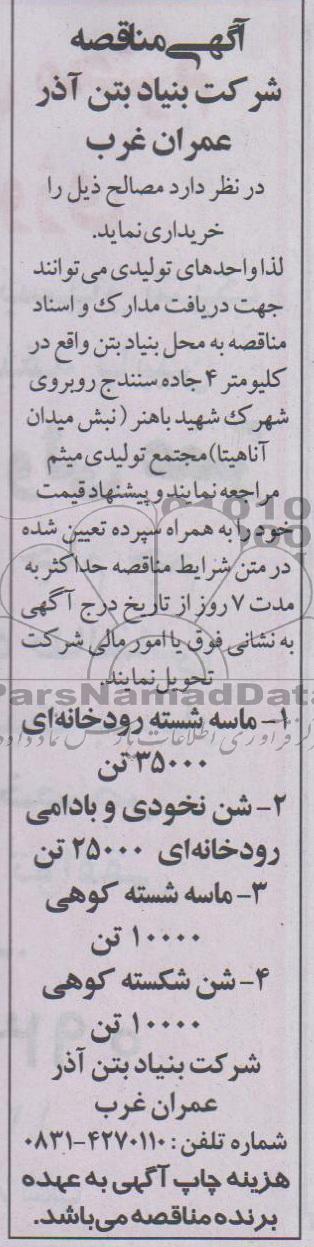 آگهی مناقصه
شرکت بنیاد بتن آذر
عمران غرب
در نظر دارد مصالح ذیل را
خریداری نماید.
لذا واحدهای تولیدی می‌توانند
جهت دریافت مدارک و اسناد
مناقصه به محل بنیاد بتن واقع در
کلیومتر ۴ جاده سنندج روبروی
شهرک شهید باهنر (نبش میدان
آناهیتا) مجتمع تولیدی میثم
مراجعه نمایند و پیشنهاد قیمت
خود را به همراه سپرده تعیین شده
در متن شرایط مناقصه حداکثر به
مدت ۷ روز از تاریخ درج آگهی
به نشانی فوق یا امور مالی شرکت
تحویل نمایند.
ParsNamadData
۱- ماسه شسته رودخانه‌ای
۳۵۰۰۰ تن
۲- شن نخودی و بادامی
رودخانه‌ای ۲۵۰۰۰ تن
۳- ماسه شسته کوهی
۱۰۰۰۰ تن
۴- شن شکسته کوهی
۱۰۰۰۰ تن
شرکت بنیاد بتن آذر
عمران غرب
شماره تلفن: ۴۲۷۰۱۱۰-۰۸۳۱
هزینه چاپ آگهی به عهده
برنده مناقصه می‌باشد.